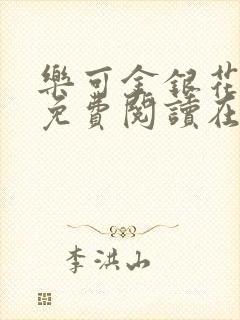 樂可金銀花
免費閱讀在
李洪山